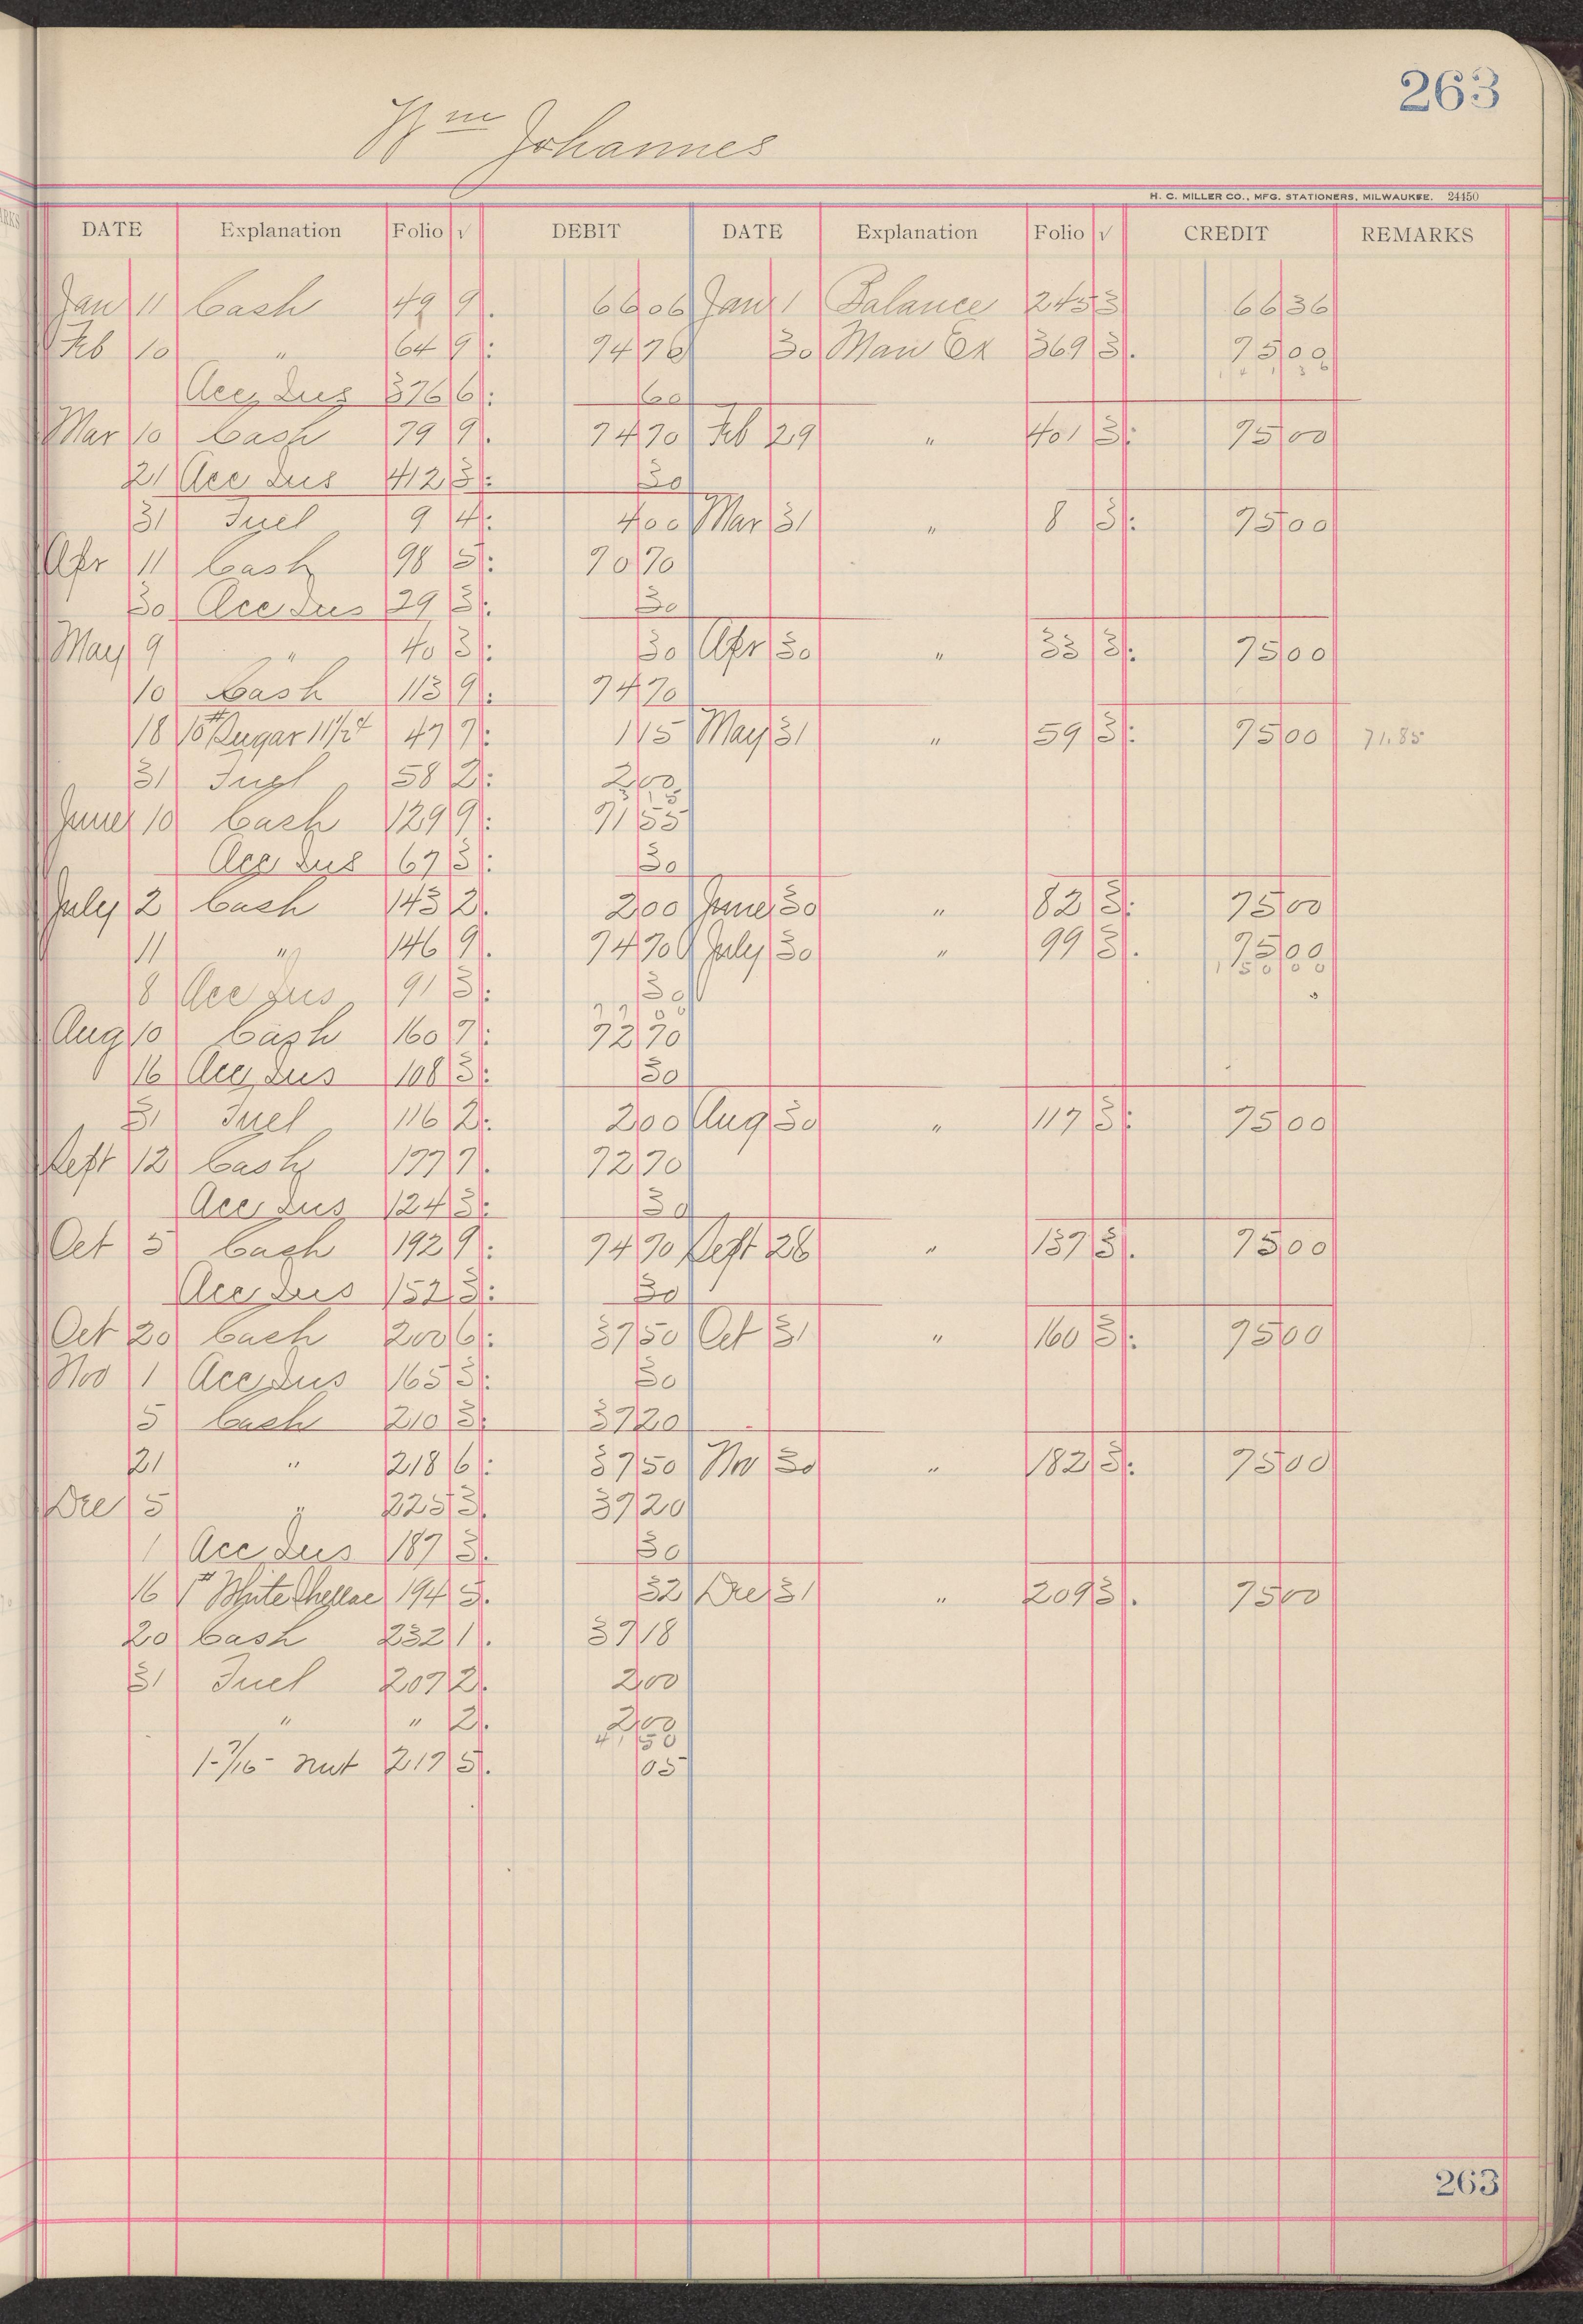 263
Wm Johannes
H. C. MILLER CO., MFG. STATIONERS, MILWAUKEE. 24450
DATE Explanation Folio √ DEBIT DATE Explanation Folio √ CREDIT REMARKS
Jan 11 Cash 49 9 66 06 Jan 1 Balance 245 3 66 36
Feb 10 " 64 9 74 70 30 Man Ex 369 3 75 00
Acc Dus 376 6 60
Mar 10 Cash 79 9 74 70 Feb 29 " 401 3 75 00
21 Acc Dus 412 3 30
31 Fuel 9 4 4 00 Mar 31 " 8 3 75 00
Apr 11 Cash 98 5 70 70
30 Acc Dus 29 3 30
May 9 " 40 3 30 Apr 30 " 33 3 75 00
10 Cash 113 9 74 70
18 10# Sugar 11½¢ 47 7 1 15 May 31 " 59 3 75 00 71.85
31 Fuel 58 2 2 00
June 10 Cash 129 9 71 55
Acc Dus 67 3 30
July 2 Cash 143 2 2 00 June 30 " 82 3 75 00
11 " 146 9 74 70 July 30 " 99 3 75 00
150 00
8 Acc Dus 91 3 30
77 00
Aug 10 Cash 160 7 72 70
16 Acc Dus 108 3 30
31 Fuel 116 2 2 00 Aug 30 " 117 3 75 00
Sept 12 Cash 177 7 72 70
Acc Dus 124 3 30
Oct 5 Cash 192 9 74 70 Sept 28 " 137 3 75 00
Acc Dus 152 3 30
Oct 20 Cash 200 6 37 50 Oct 31 " 160 3 75 00
Nov 1 Acc Dus 165 3 30
5 Cash 210 3 37 20
21 " 218 6 37 50 Nov 30 " 182 3 75 00
Dec 5 " 225 3 37 20
1 Acc Dus 187 3 30
16 1# White Shellac 194 5 32 Dec 31 " 209 3 75 00
20 Cash 232 1 37 18
31 Fuel 207 2 2 00
" " 2 2 00
41 50
1-7/16- nut 217 5 05
263